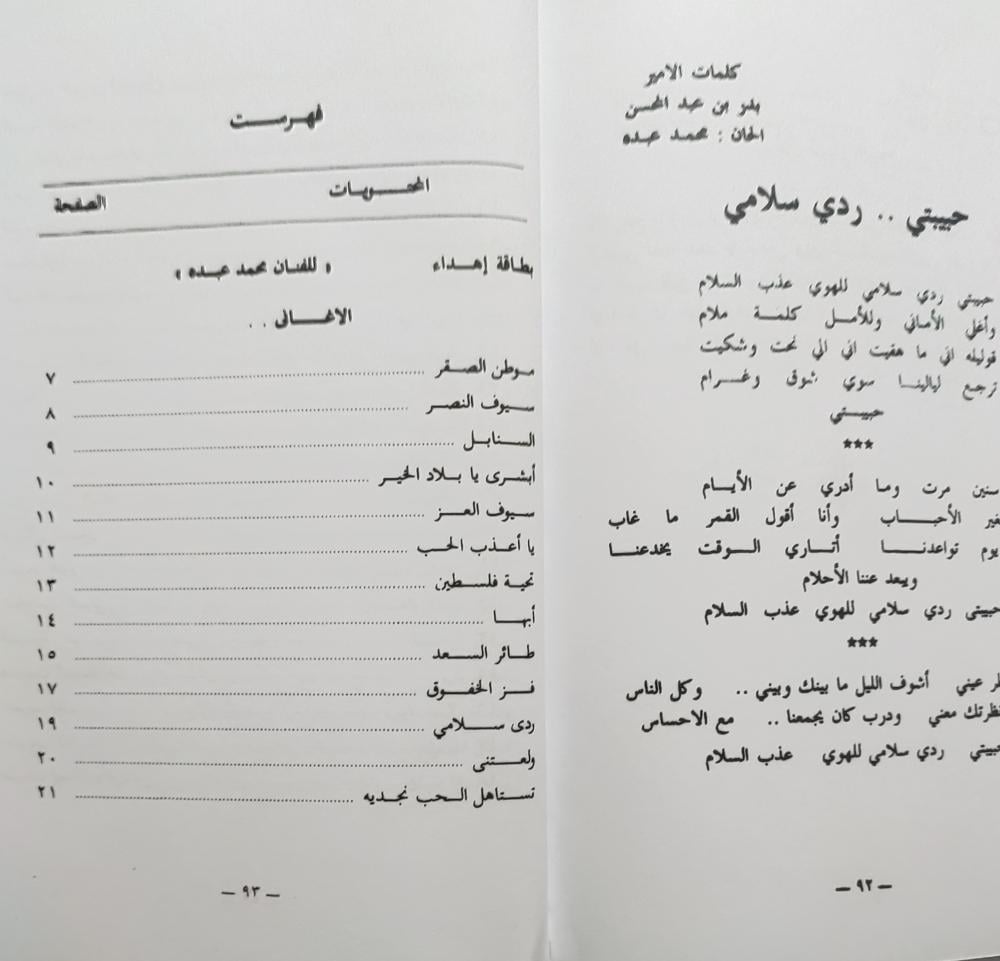 كلمات الامير
بدر بن عبد المحسن
الحان : محمد عبده
حبيبتي .. ردي سلامي
حبيبتي ردي سلامي للهوي عذب السلام
وأغلي الأماني وللأمل كلمة ملام
قوليله اني ما هقيت اني الي نحت وشكيت
ترجع ليالينا سوي شوق وغرام
حبيبتي
***
سنين مرت وما أدري عن الأيام
الأحباب وأنا أقول القمر ما غاب
يوم تواعدنا أتاري الوقت يخدعنا
ويبعد عننا الأحلام
حبيبتى ردي سلامي للهوي عذب السلام
***
عيني أشوف الليل ما بينك وبيني .. وكل الناس
نظرتك معني ودرب كان يجمعنا .. مع الاحساس
حبيبتي ردي سلامي للهوي عذب السلام
— ٩٢ —
فهرست
المحتويات الصفحة
بطاقة إهداء « للفنان محمد عبده »
الاغانى ..
موطن الصقر ٧
سيوف النصر ٨
السنابل ٩
أبشرى يا بلاد الخير ١٠
سيوف العز ١١
يا أعذب الحب ١٢
تحية فلسطين ١٣
أبها ١٤
طائر السعد ١٥
فز الخفوق ١٧
ردى سلامي ١٩
ولعتنى ٢٠
تستاهل الحب نجديه ٢١
— ٩٣ —